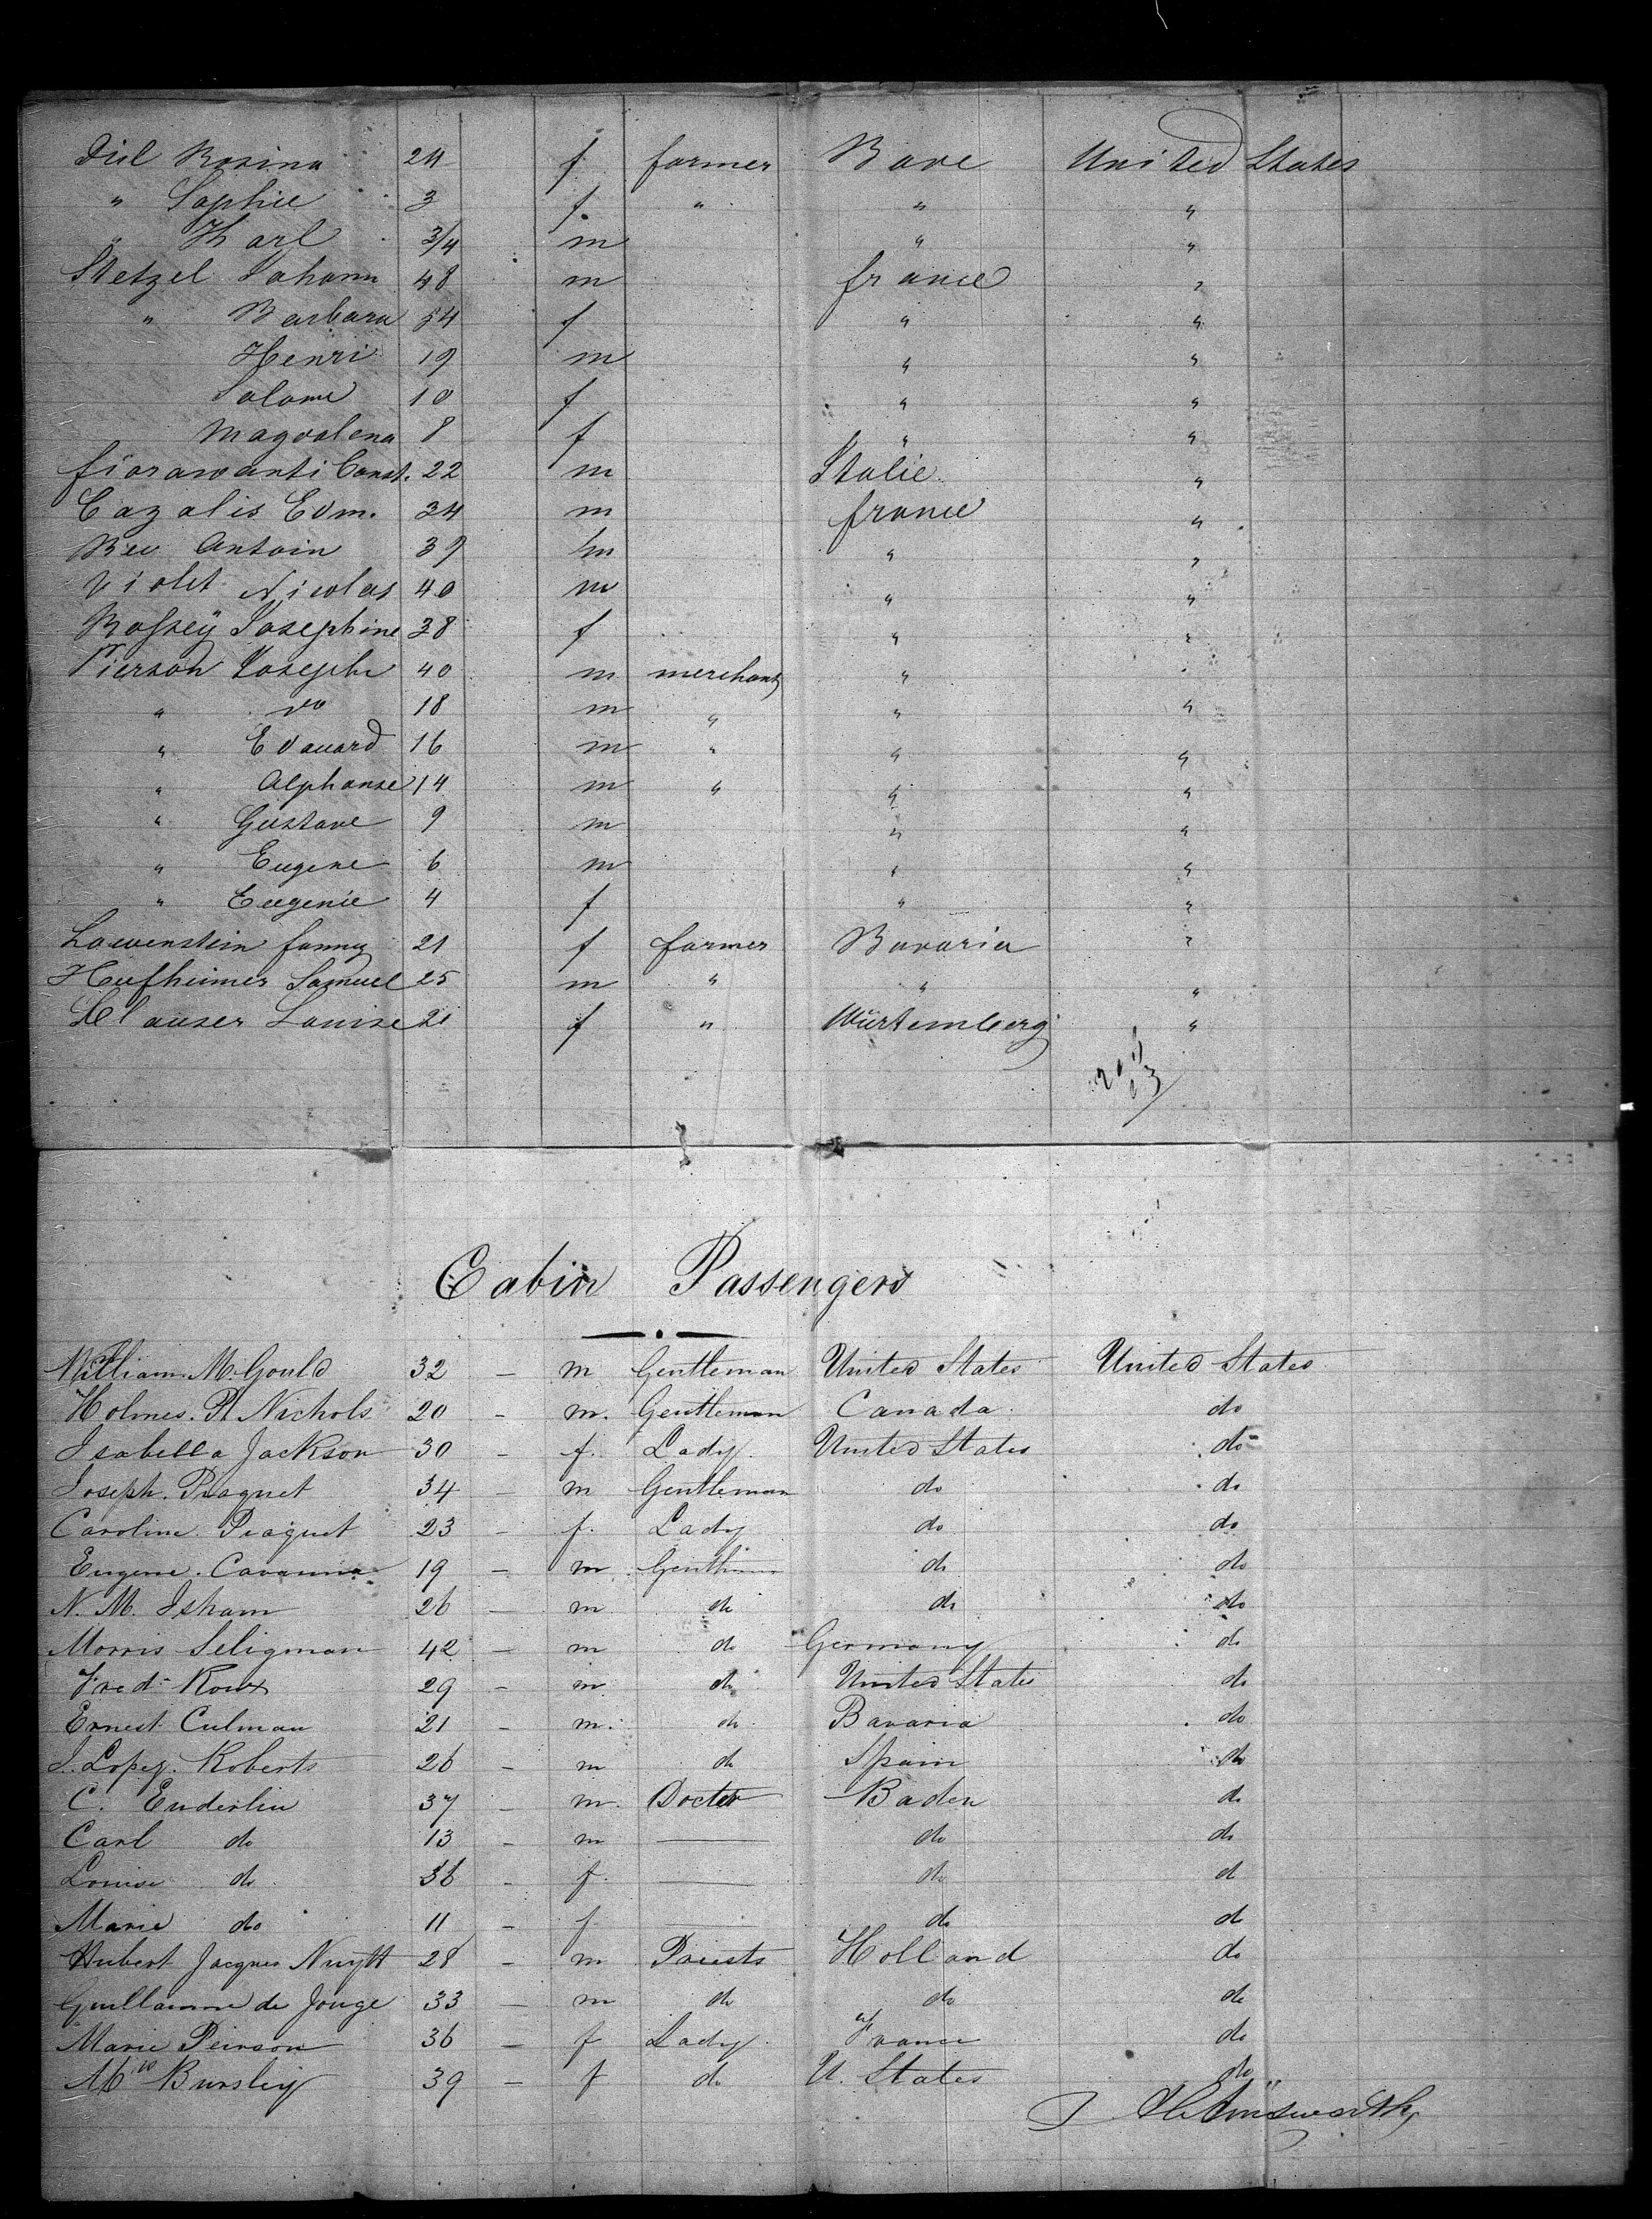 Diel Rosina 24 f farmer Bave United States
" Sophie 3 f " " "
" Karl 3/4 m " "
Stetzel Johann 48 m france "
" Barbara 54 f " "
Henri 19 m " "
Salome 10 f " "
Magdalena 8 f " "
fiorawanti Const. 22 m Italie "
Cazalis Edm. 34 m france "
Antoin 39 m " "
Violet Nicolas 40 m " "
Rossey Josephine 38 f " "
Pierson Joseph 40 m merchant " "
" do 18 m " " "
" Edouard 16 m " " "
" Alphonse 14 m " " "
" Gustave 9 m " "
" Eugene 6 m " "
" Eugenie 4 f " "
Lowenstein fanny 21 f farmer Bavaria "
Hufheimer Samuel 25 m " " "
Klauser Louise 21 f " Würtemberg "
Cabin Passengers
William M. Gould 32 – m Gentleman United States United States
Holmes. A Nichols 20 – m. Gentleman Canada. do
Isabella Jackson 30 – f. Lady United States do
Joseph. Piaguet 34 – m Gentleman do do
Caroline Piaguet 23 – f. Lady do do
Eugene. Cavanna 19 – m Gentleman do do
N. M. Isham 26 – m do do do
Morris Seligman 42 – m do Germany do
Fred Roux 29 – m do United States do
Ernest Culman 21 – m. do Bavaria do
J. Lopez. Roberts 26 – m do Spain do
C. Enderlin 37 – m. Doctor Baden do
Carl do 13 – m — do do
Louise do 36 – f. — do do
Marie do 11 – f — do do
Hubert Jacques Nuytt 28 – m Priests Holland do
Guillaume de Jonge 33 – m do do do
Marie Peirson 36 – f Lady France do
Mrs Bursley 39 – f do U. States do